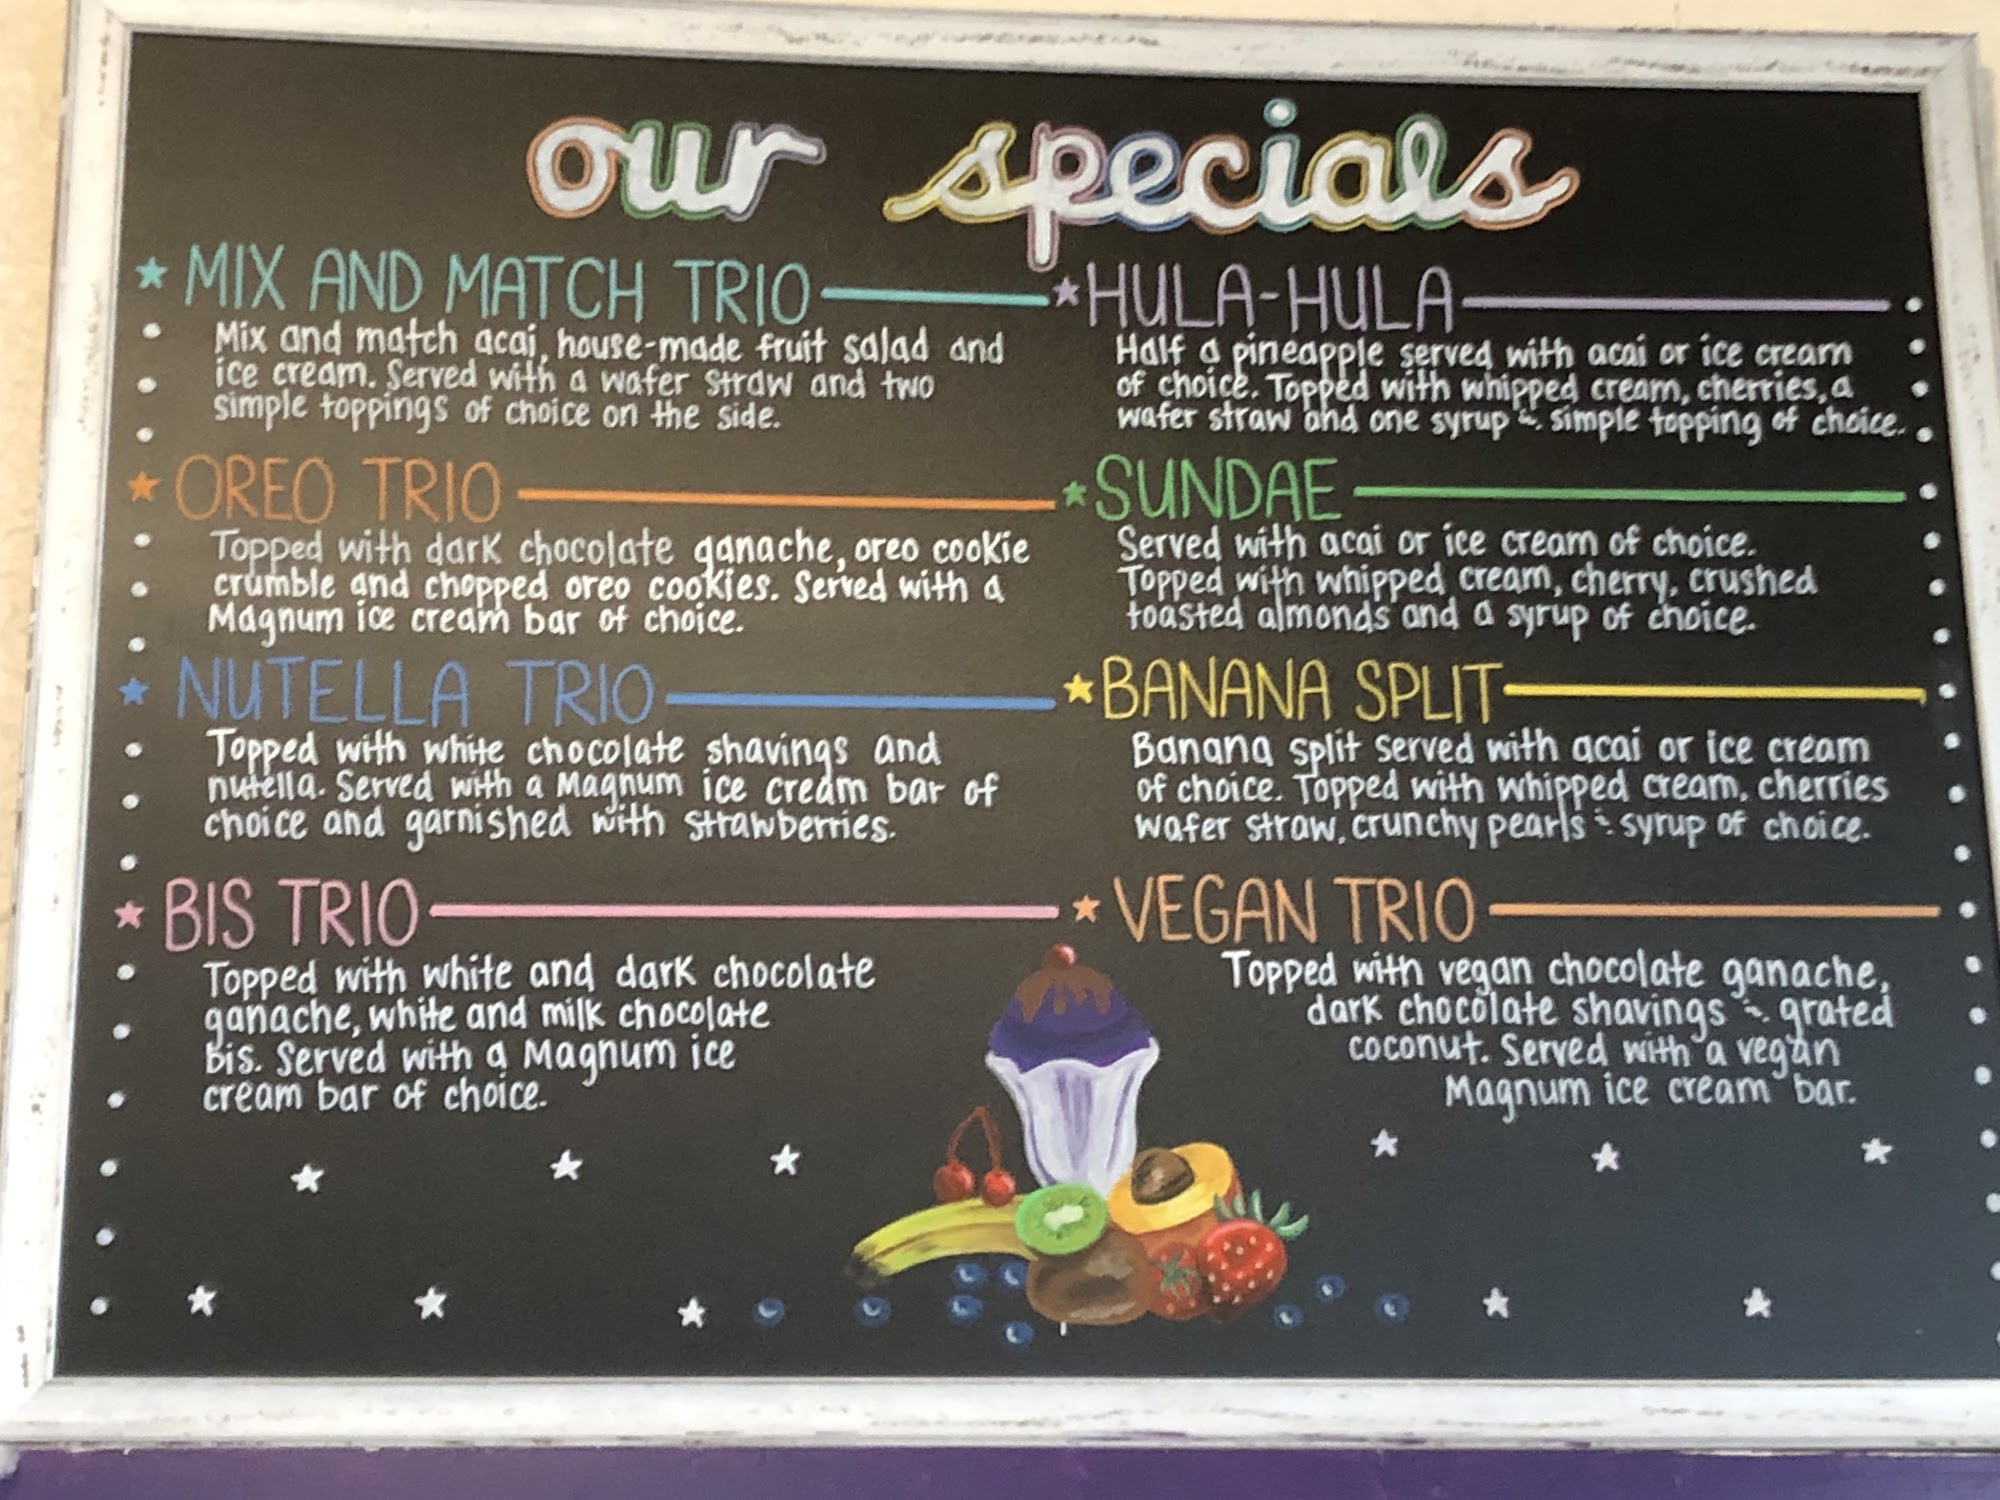 our specials
MIX AND MATCH TRIO
Mix and match acai, house-made fruit salad and
ice cream. Served with a wafer straw and two
simple toppings of choice on the side.
OREO TRIO
Topped with dark chocolate ganache, oreo cookie
crumble and chopped oreo cookies. Served with a
Magnum ice cream bar of choice.
NUTELLA TRIO
Topped with white chocolate shavings and
nutella. Served with a Magnum ice cream bar of
choice and garnished with strawberries.
BIS TRIO
Topped with white and dark chocolate
ganache, white and milk chocolate
Bis. Served with a Magnum ice
cream bar of choice.
HULA-HULA
Half a pineapple served with acai or ice cream
of choice. Topped with whipped cream, cherries, a
wafer straw and one syrup & simple topping of choice.
SUNDAE
Served with acai or ice cream of choice.
Topped with whipped cream, cherry, crushed
toasted almonds and a syrup of choice.
BANANA SPLIT
Banana split served with acai or ice cream
of choice. Topped with whipped cream, cherries
wafer straw, crunchy pearls & syrup of choice.
VEGAN TRIO
Topped with vegan chocolate ganache,
dark chocolate shavings & grated
coconut. Served with a vegan
Magnum ice cream bar.